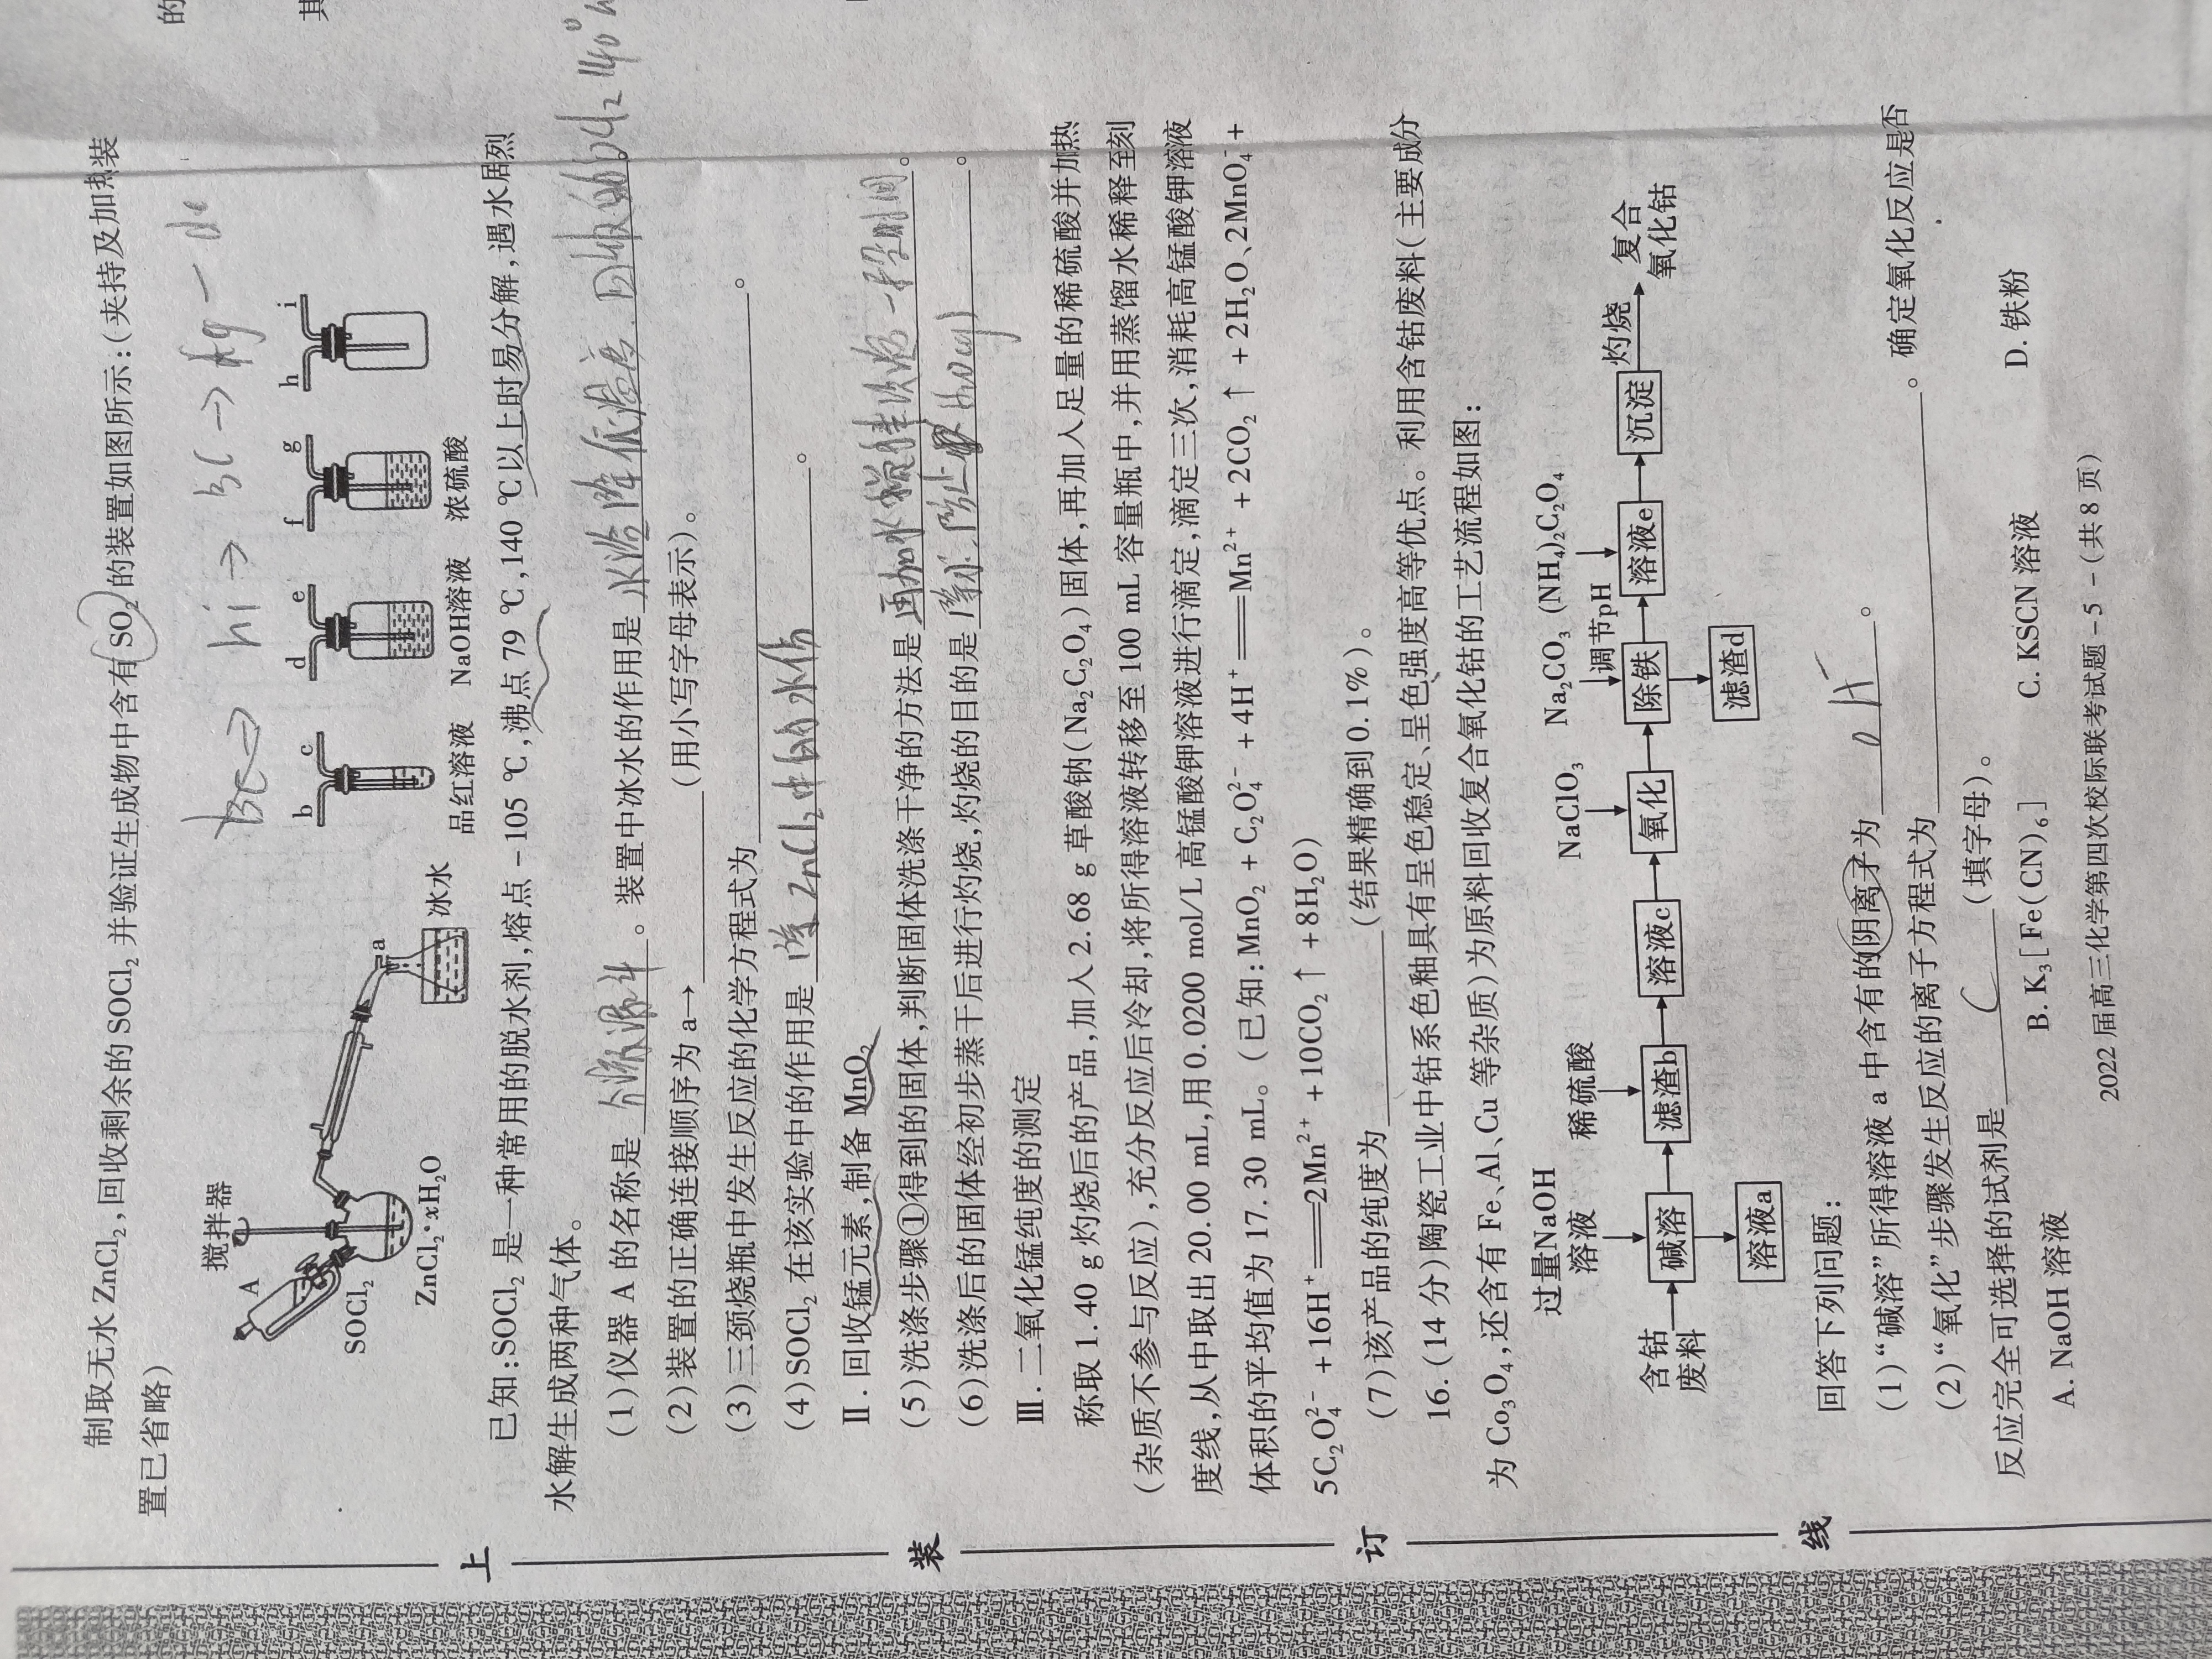 制取无水 ZnCl₂,回收剩余的 SOCl₂ 并验证生成物中含有 SO₂ 的装置如图所示:(夹持及加热装
置已省略)
hi→
搅拌器
A
a
b c
d e
f g
h i
SOCl₂
冰水
品红溶液 NaOH溶液 浓硫酸
ZnCl₂·xH₂O
已知:SOCl₂ 是一种常用的脱水剂,熔点 −105 ℃,沸点 79 ℃,140 ℃以上时易分解,遇水剧烈
水解生成两种气体。
(1)仪器 A 的名称是 分液漏斗 。装置中冰水的作用是 冰浴降低温度
(2)装置的正确连接顺序为 a→ (用小写字母表示)。
(3)三颈烧瓶中发生反应的化学方程式为 。
(4)SOCl₂ 在该实验中的作用是 ZnCl₂中的水 。
Ⅱ. 回收锰元素,制备 MnO₂
(5)洗涤步骤①得到的固体,判断固体洗涤干净的方法是 再加水搅拌 一段时间 。
(6)洗涤后的固体经初步蒸干后进行灼烧,灼烧的目的是 防止 。
Ⅲ. 二氧化锰纯度的测定
称取 1.40 g 灼烧后的产品,加入 2.68 g 草酸钠(Na₂C₂O₄)固体,再加入足量的稀硫酸并加热
(杂质不参与反应),充分反应后冷却,将所得溶液转移至 100 mL 容量瓶中,并用蒸馏水稀释至刻
度线,从中取出 20.00 mL,用 0.0200 mol/L 高锰酸钾溶液进行滴定,滴定三次,消耗高锰酸钾溶液
体积的平均值为 17.30 mL。(已知:MnO₂ + C₂O₄²⁻ + 4H⁺ ══ Mn²⁺ + 2CO₂↑ + 2H₂O、2MnO₄⁻ +
5C₂O₄²⁻ + 16H⁺ ══ 2Mn²⁺ + 10CO₂↑ + 8H₂O)
(7)该产品的纯度为 (结果精确到 0.1%)。
16. (14 分)陶瓷工业中钴系色釉具有呈色稳定、呈色强度高等优点。利用含钴废料(主要成分
为 Co₃O₄,还含有 Fe、Al、Cu 等杂质)为原料回收复合氧化钴的工艺流程如图:
过量NaOH
溶液
稀硫酸
NaClO₃
Na₂CO₃
调节pH
(NH₄)₂C₂O₄
含钴
废料
碱溶
滤渣b
溶液c
氧化
除铁
溶液e
沉淀
灼烧
复合
氧化钴
溶液a
滤渣d
回答下列问题:
(1)“碱溶”所得溶液 a 中含有的阴离子为 OH⁻ 。
(2)“氧化”步骤发生反应的离子方程式为 。确定氧化反应是否
反应完全可选择的试剂是 C (填字母)。
A. NaOH 溶液 B. K₃[Fe(CN)₆] C. KSCN 溶液 D. 铁粉
2022 届高三化学第四次校际联考试题 −5−(共 8 页)
上
装
订
线